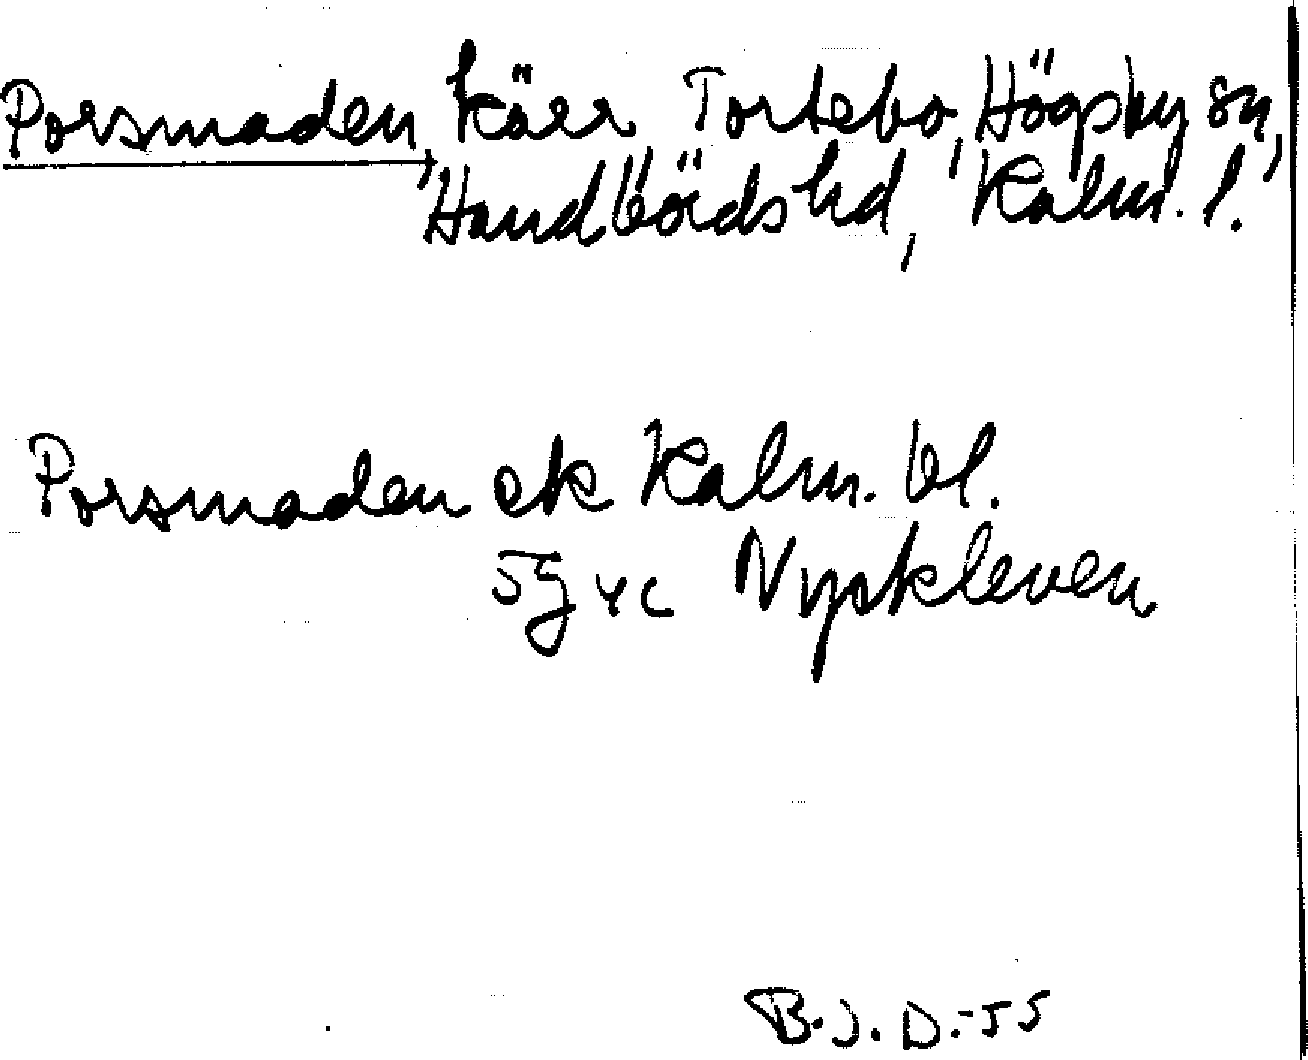 Porsmaden, kärr Tortebo, Högsby sn,
Handbörds hd, Kalm. l.
Porsmaden ek Kalm. bl.
5g 4c Nyskleven
B.J.D.-55